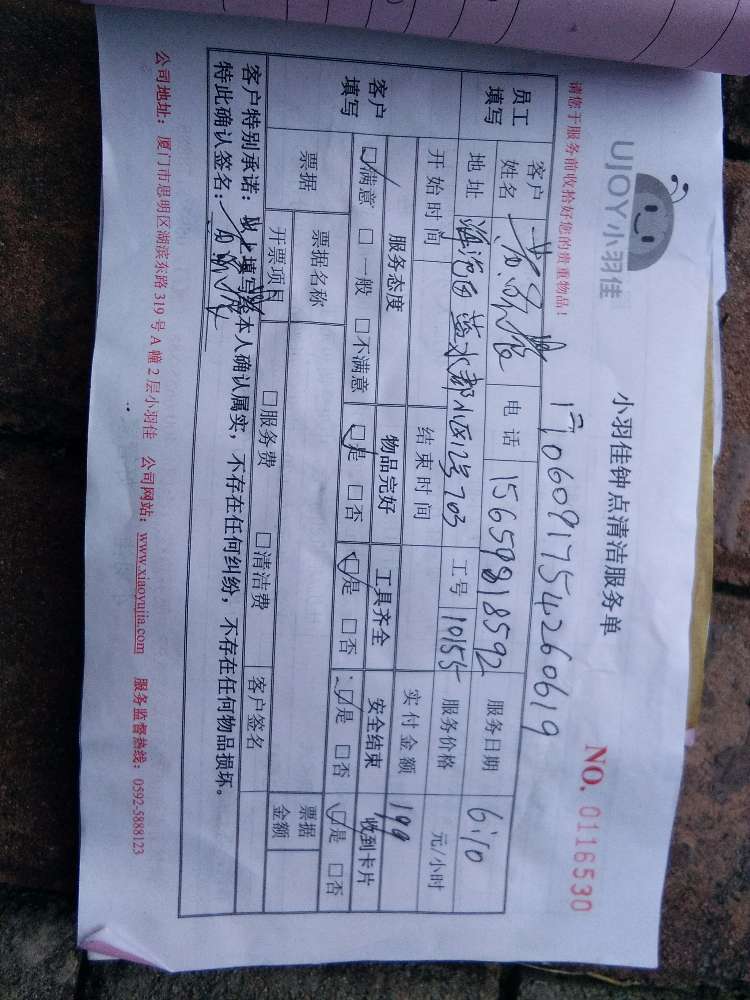 UJOY小羽佳
小羽佳钟点清洁服务单
NO. 0116530
请您于服务前收拾好您的贵重物品！
1706091754260619
员工填写 客户姓名 电话 15659818592 服务日期 6.10
地址 海沧区蓝水郡小区12号703 工号 10155 服务价格 元/小时
开始时间 结束时间 实付金额 199
客户填写 服务态度 物品完好 工具齐全 安全结束 收到卡片
☑满意 □一般 □不满意 ☑是 □否 ☑是 □否 ☑是 □否 ☑是 □否
票据 票据名称 票据金额
开票项目 □服务费 □清洁费 客户签名
客户特别承诺：以上填写经本人确认属实，不存在任何纠纷，不存在任何物品损坏。
特此确认签名：
公司地址：厦门市思明区湖滨东路319号A幢2层小羽佳 公司网站：www.xiaoyujia.com 服务监督热线：0592-5888123